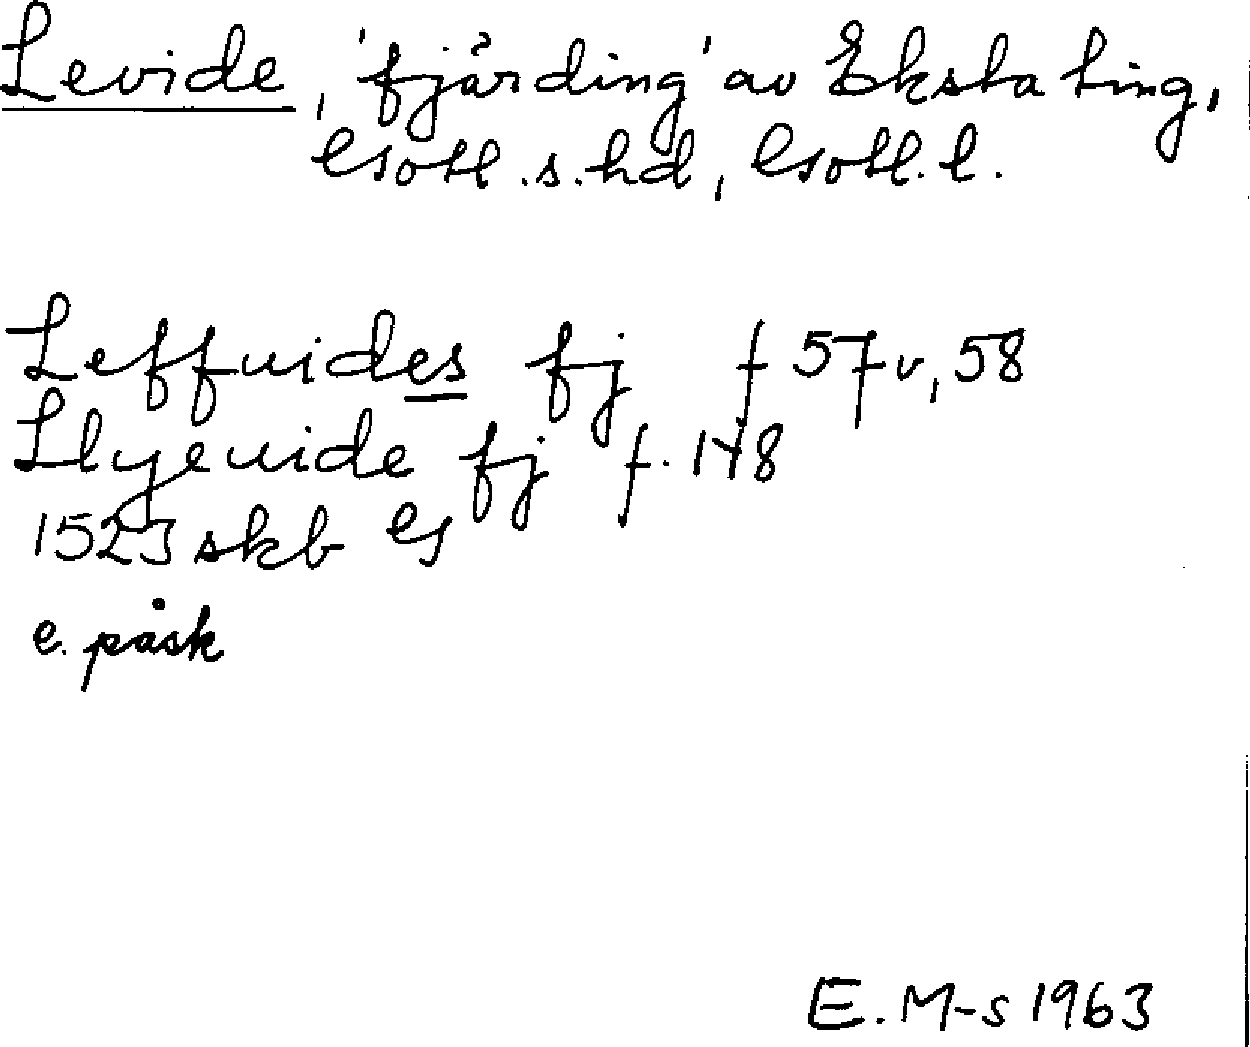 Levide, 'fjärding' av Eksta ting,
Gotl. s. hd, Gotl. l.
Leffuides fj f 57v, 58
Llyeuide fj f. 148
1523 skb G
e. påsk
E. M-s 1963